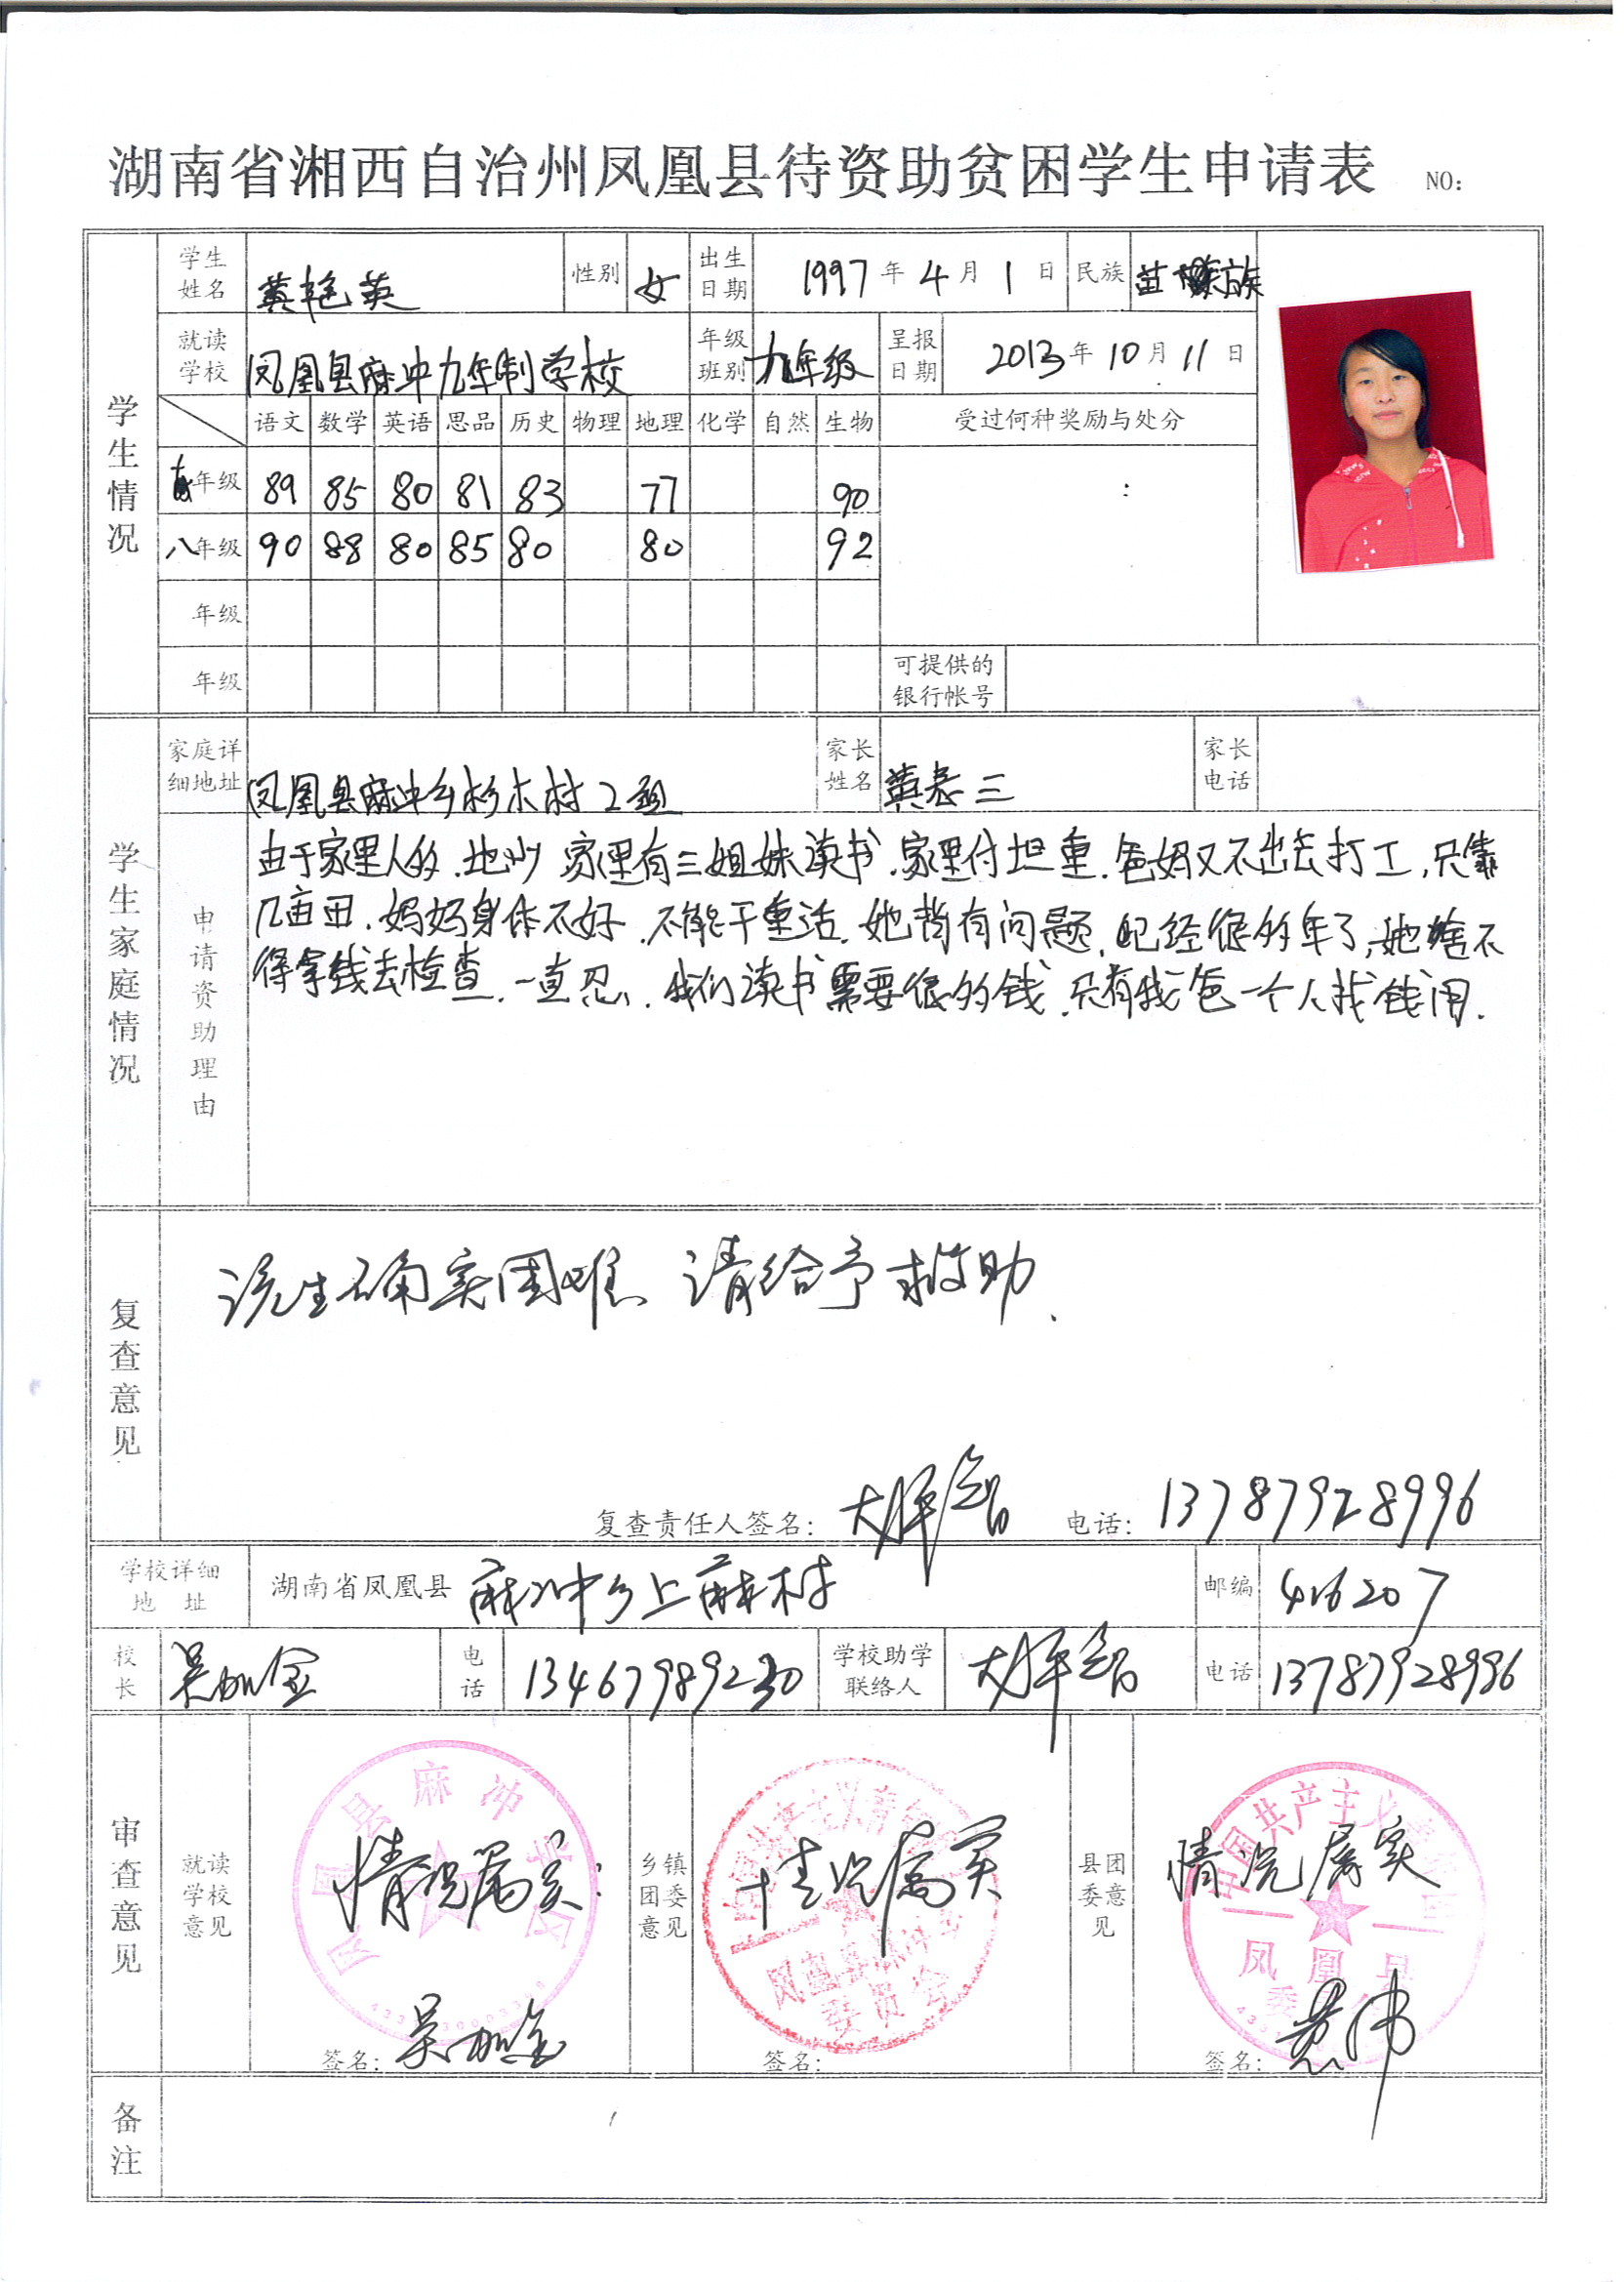 湖南省湘西自治州凤凰县待资助贫困学生申请表 NO:
学生情况
学生姓名 黄艳英 性别 女 出生日期 1997 年 4 月 1 日 民族 苗族
就读学校 凤凰县麻冲九年制学校 年级班别 九年级 呈报日期 2013 年 10 月 11 日
语文 数学 英语 思品 历史 物理 地理 化学 自然 生物 受过何种奖励与处分
七年级 89 85 80 81 83 77 90
八年级 90 88 80 85 80 80 92
年级
年级 可提供的银行帐号
学生家庭情况
家庭详细地址 凤凰县麻冲乡杉木村2组 家长姓名 黄志三 家长电话
申请资助理由
由于家里人多.地少 家里有三姐妹读书.家里付坦重.爸妈又不出去打工,只靠
几亩田.妈妈身体不好.不能干重活.她背有问题,已经很多年了,她啥不
得拿钱去检查.一直忍.我们读书需要很多钱.只有我爸一个人找钱用.
复查意见
该生确实困难、请给予救助、
复查责任人签名: 电话: 13787928996
学校详细地址 湖南省凤凰县 麻冲乡上麻村 邮编 416207
校长 吴加金 电话 13467989230 学校助学联络人 电话 13787928996
审查意见
就读学校意见 情况属实. 签名: 吴加金
凤凰县麻冲学区
乡镇团委意见 情况属实 签名:
凤凰县麻冲乡委员会
县团委意见 情况属实 签名:
中国共产主义青年团凤凰县委员会
备注